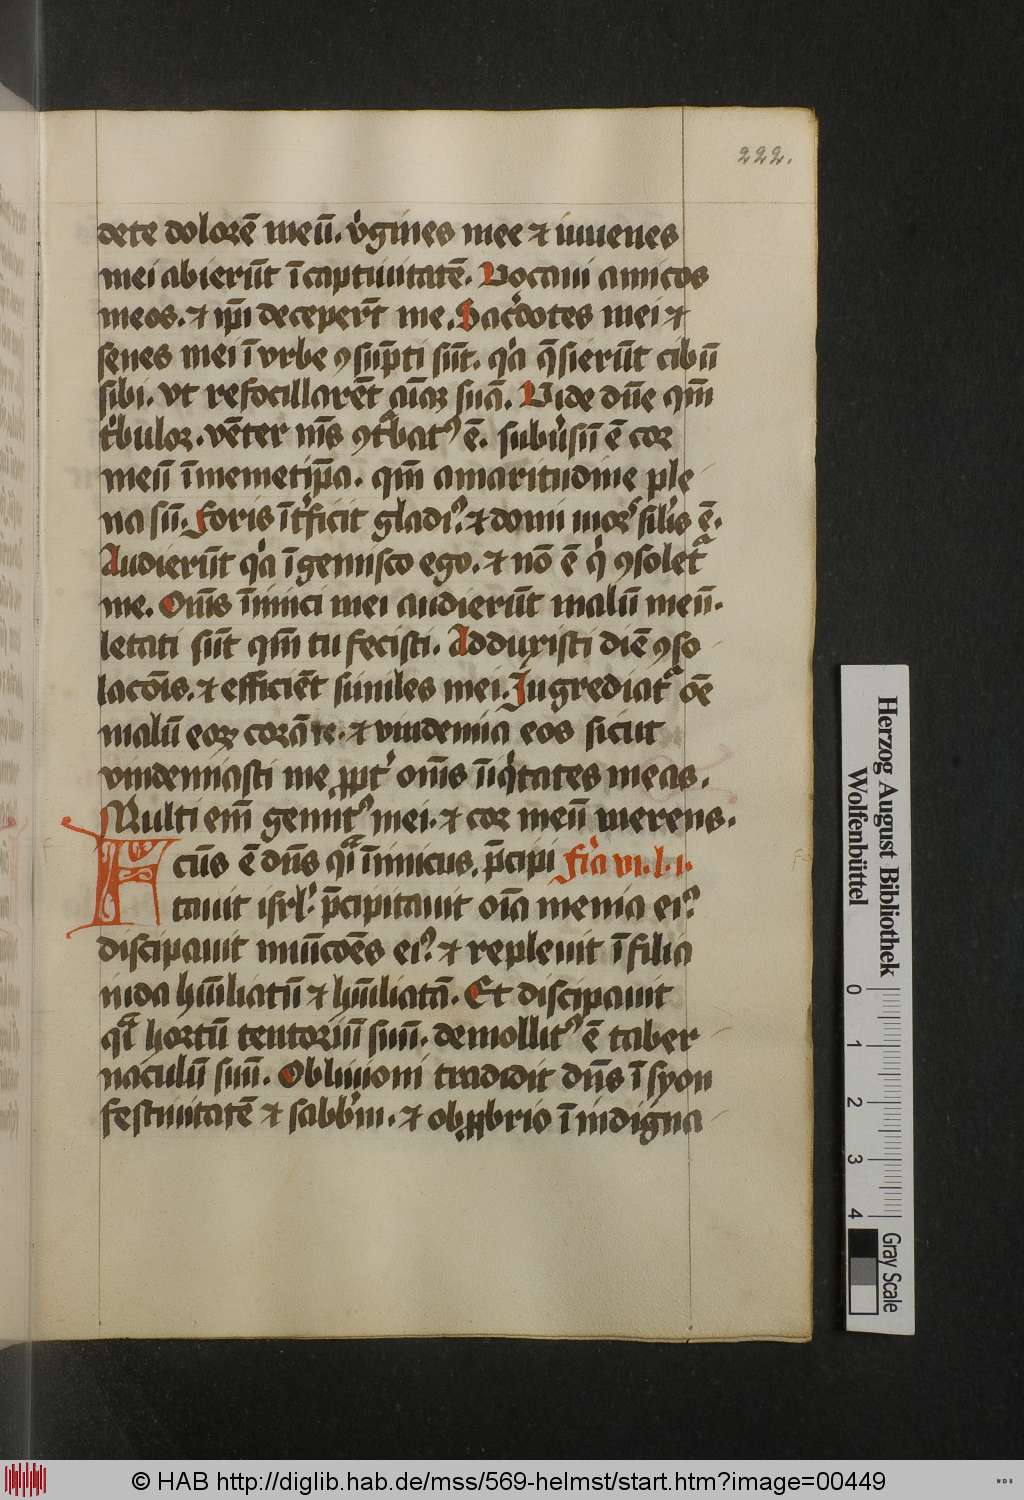 222.
dete dolorē meū. v̓gines mee ⁊ iuuenes
mei abierūt ī captiuitatē. Vocaui amicos
meos. ⁊ ip̄i deceper̄t me. Sac̓dotes mei ⁊
senes mei ī vrbe ꝯsūpti sūt. q̓a q̄sierūt cibū
sibi. vt refocillarēt aīaꝝ suā. Vide dn̄e qm̄
t̓bulor. vēter m̄s ꝯt̓batꝰ ē. subūsū ē cor
meū ī memetip̄a. qm̄ amaritudine ple
na sū. Foris īt̓ficit gladiꝰ. ⁊ domi mor̓ sil̓is ē.
Audierūt q̓a īgemisco ego. ⁊ nō ē q̓ ꝯsolet᷑
me. Om̄s īimici mei audierūt malū meū.
letati sūt qm̄ tu fecisti. Adduxisti diē ꝯso
lacōis. ⁊ efficiēt similes mei. Ingrediat᷑ oē
malū eoꝝ corā te. ⁊ vindemia eos sicut
vindemiasti me ꝓpt̓ om̄s īiq̓tates meas.
Multi em̄ gemitꝰ mei. ⁊ cor meū merens.
Fcūs ē dn̄s qͣi īimicus. p̄cipi fīa vi. l. i.
tauit isrl̓. p̄cipitauit oīa menia eiꝰ
discipauit mūicōes eiꝰ. ⁊ repleuit ī filia
iuda hūiliatū ⁊ hūiliatā. Et discipauit
qͣi hortū tentoriū suū. demollitꝰ ē taber
naculū suū. Obliuioni tradidit dn̄s ī syon
festiuitatē ⁊ sabb̓m. ⁊ obꝓbrio ī indigna
Herzog August Bibliothek
Wolfenbüttel
0 1 2 3 4
Gray Scale
© HAB http://diglib.hab.de/mss/569-helmst/start.htm?image=00449